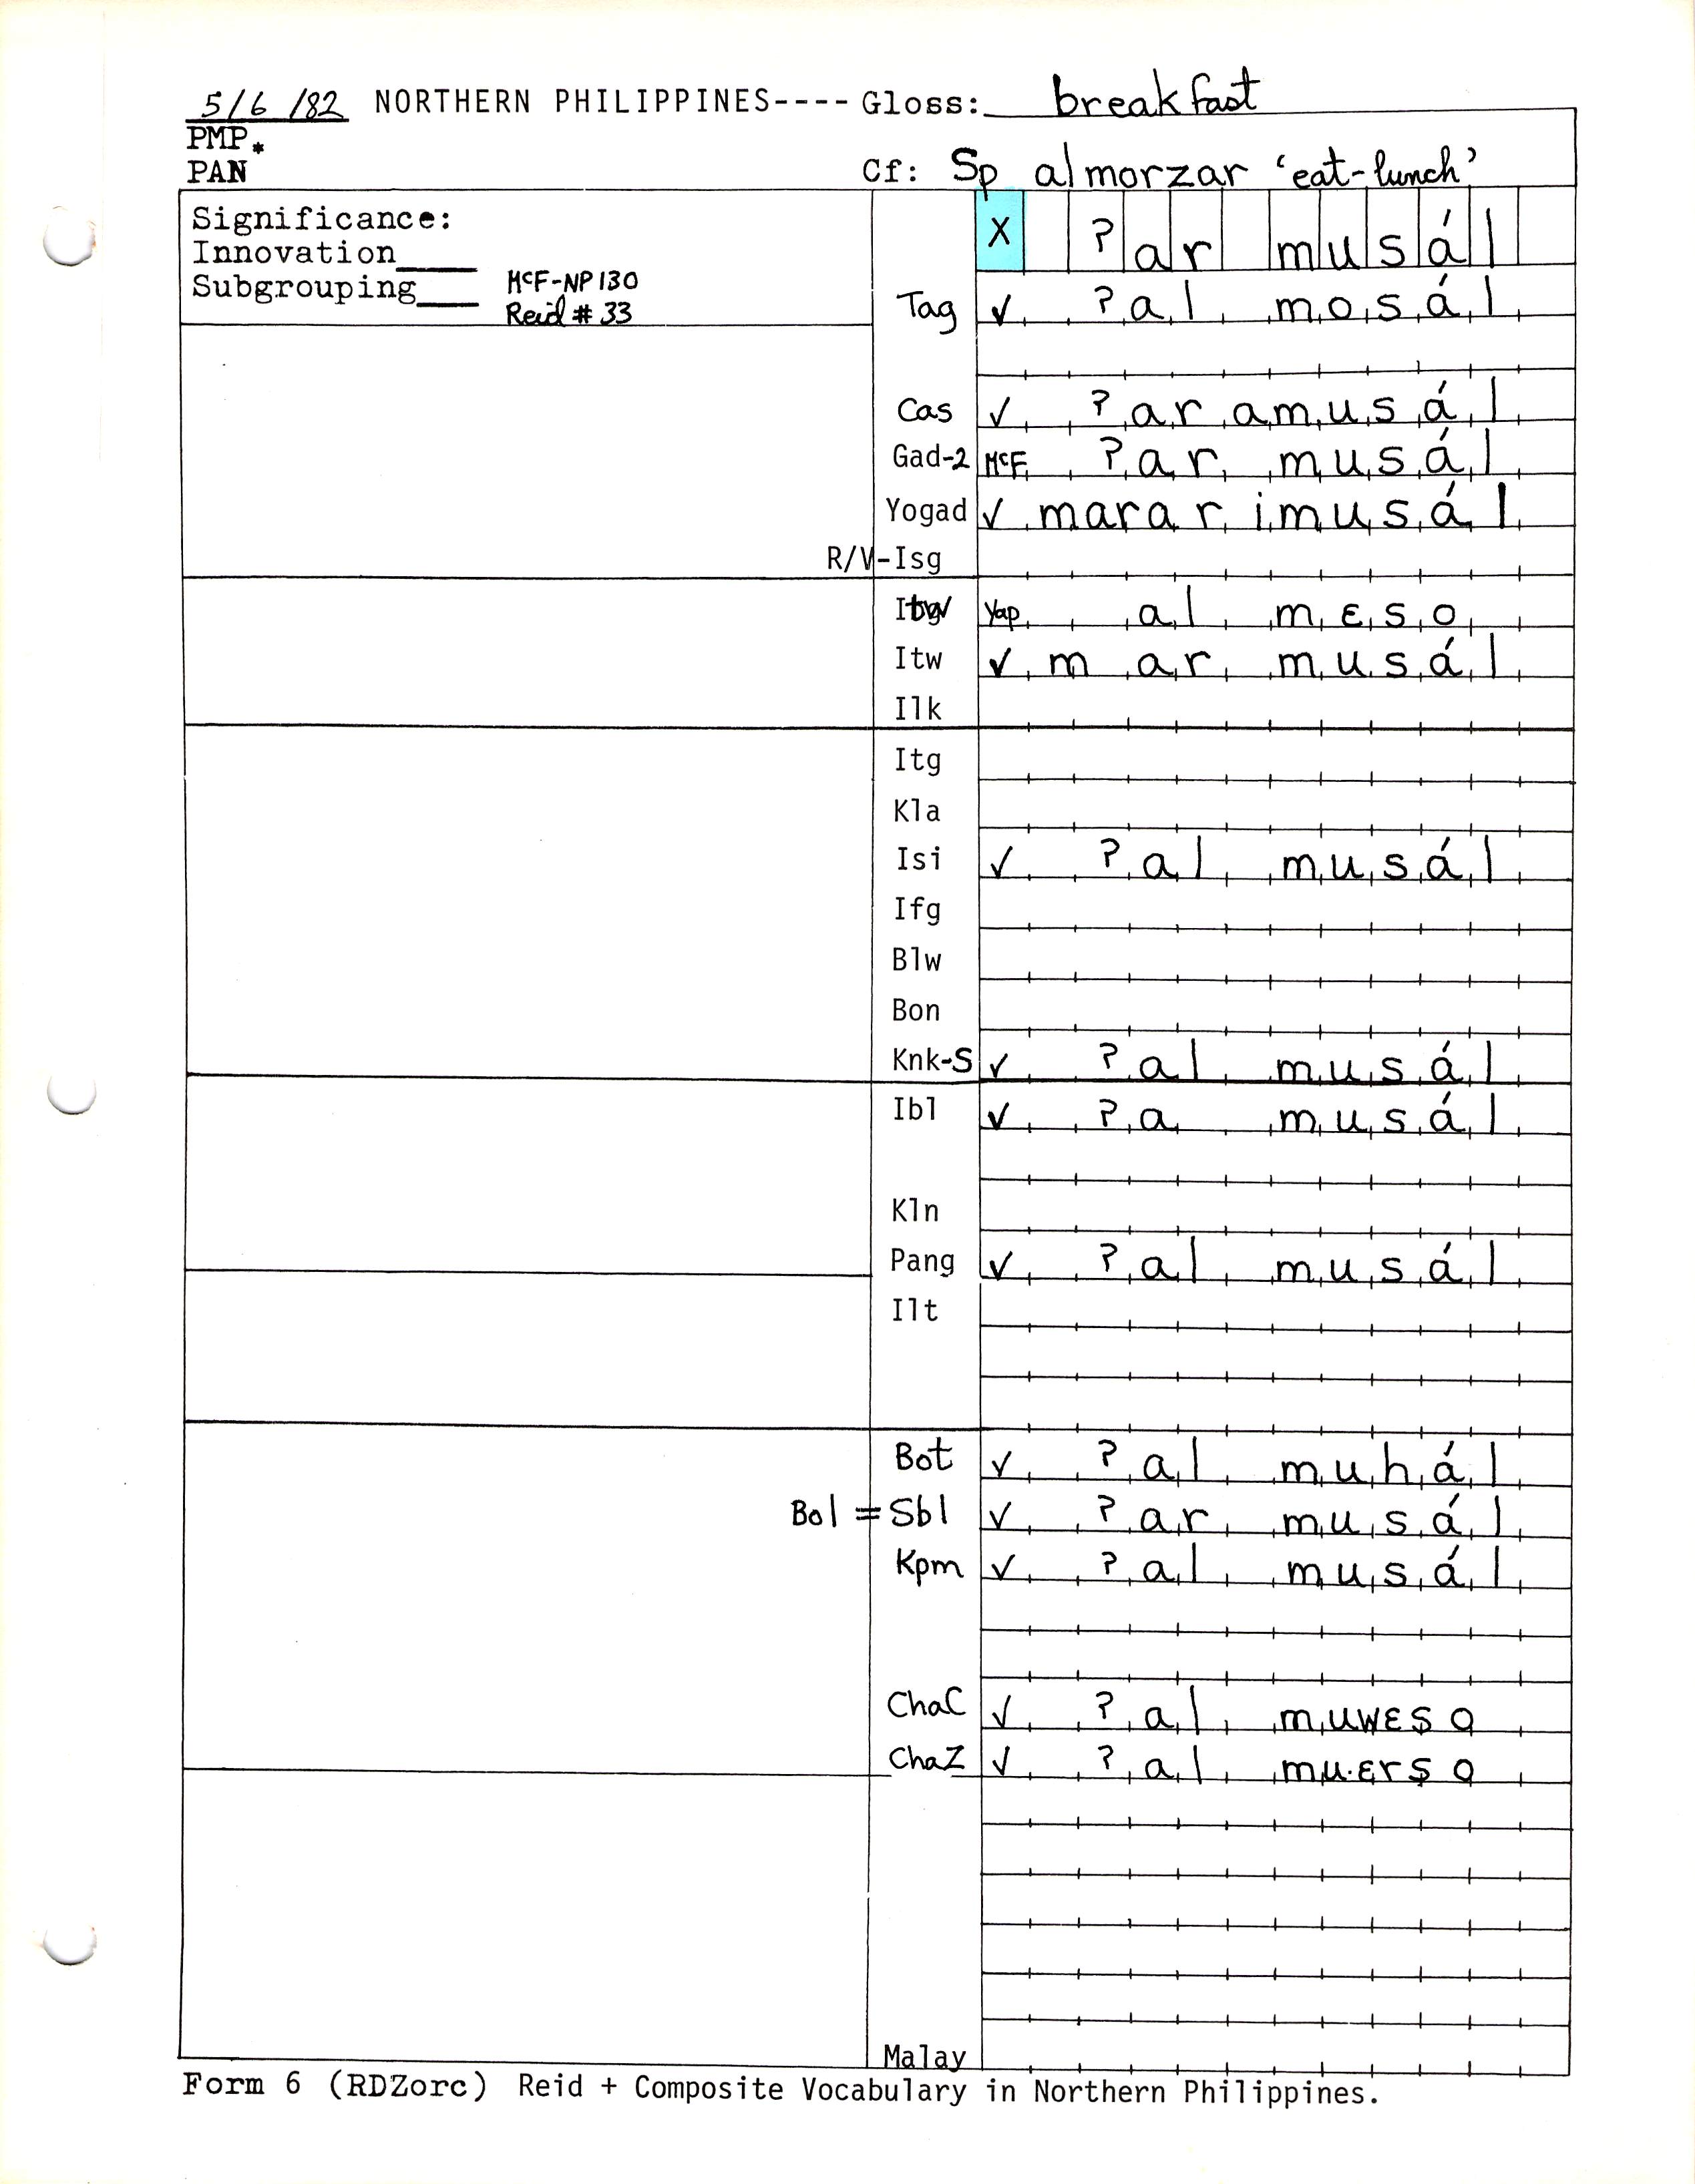 5/6/82 NORTHERN PHILIPPINES---- Gloss: breakfast
PMP*
PAN Cf: Sp almorzar ‘eat-lunch’
Significance: X ʔar musál
Innovation____
Subgrouping____ McF-NP 130
Reid # 33
Tag ✓ ʔal mosál
Cas ✓ ʔar amusál
Gad-2 McF ʔar musál
Yogad ✓ marar imusál
R/V-Isg
Yap al mɛso
Itw ✓ m ar musál
Ilk
Itg
Kla
Isi ✓ ʔal musál
Ifg
Blw
Bon
Knk-S ✓ ʔal musál
Ibl ✓ ʔa musál
Kln
Pang ✓ ʔal musál
Ilt
Bot ✓ ʔal muhál
Bol = Sbl ✓ ʔar musál
Kpm ✓ ʔal musál
ChaC ✓ ʔal muwɛso
ChaZ ✓ ʔal mu.ɛrso
Malay
Form 6 (RDZorc) Reid + Composite Vocabulary in Northern Philippines.